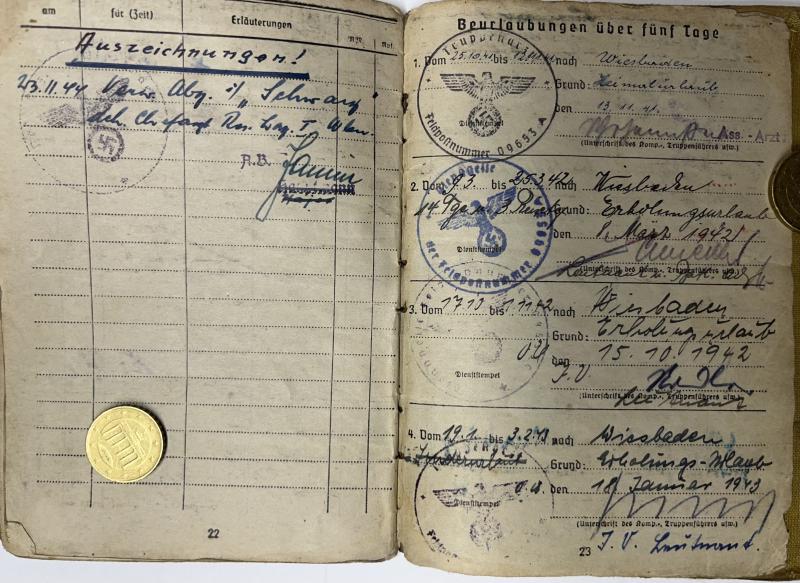 am für (Zeit) Erläuterungen
Auszeichnungen!
23.11.44 Verw. Abz. i/ „Schwarz"
dch Chefarzt Res. Laz.
R.B.
Hauptmann
22
Beurlaubungen über fünf Tage
1. Vom 25.10.41 bis nach Wiesbaden
Grund: Heimaturlaub
den 13.11.41.
Ass.-Arzt
Truppenarzt
Feldpostnummer 09653 A
Dienststempel
(Unterschrift des Komp.-, Truppenführers usw.)
2. Vom bis 25.3.42 nach Wiesbaden
14 Tge u. 3 Grund: Erholungsurlaub
den 1. März 1942
der Feldpostnummer
Dienststempel
(Unterschrift des Komp.-, Truppenführers usw.)
3. Vom 17.10 bis 1.11.42 nach Wiesbaden
Grund: Erholungsurlaub
OU den 15.10.1942
Dienststempel
I.V.
(Unterschrift des Komp.-, Truppenführers usw.)
Leutnant
4. Vom 19.1. bis 3.2.43 nach Wiesbaden
Sonderurlaub Grund: Erholungs-Urlaub
O.U. den 18. Januar 1943
Dienststempel
(Unterschrift des Komp.-, Truppenführers usw.)
23 I.V. Leutnant.